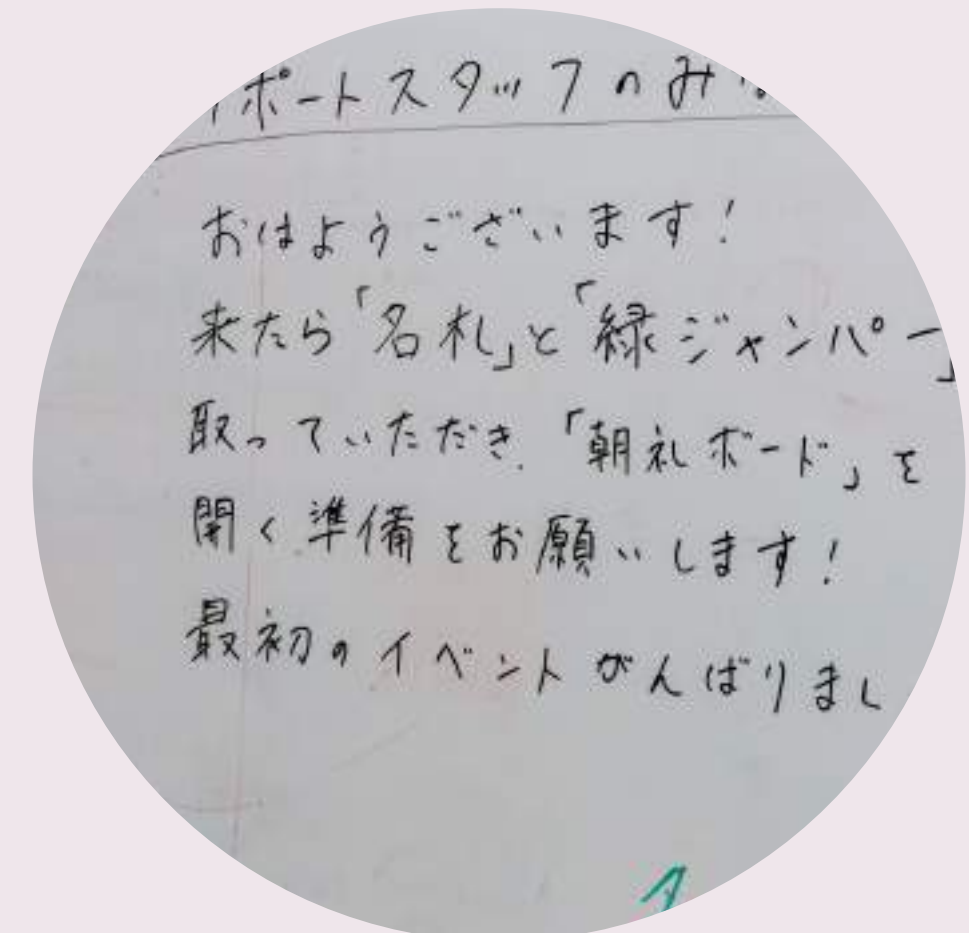 ポートスタッフのみ
おはようございます!
来たら「名札」と「緑ジャンパー」
取っていただき、「朝礼ボード」を
開く準備をお願いします!
最初のイベントがんばりまし